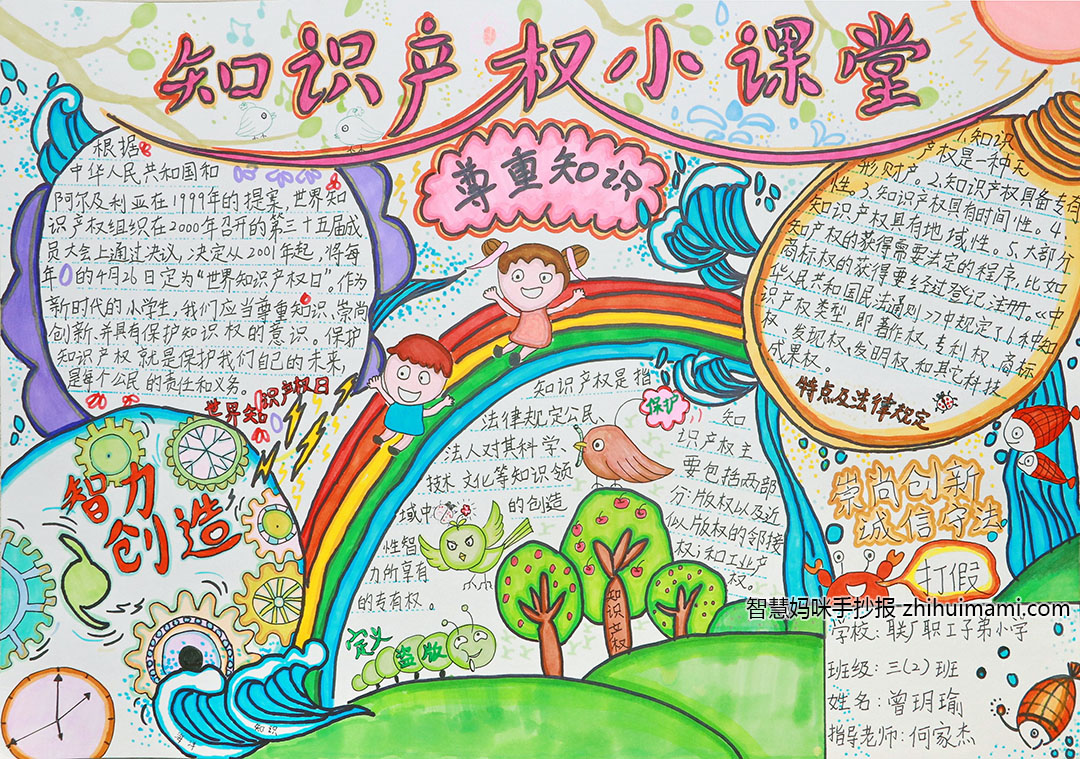 知识产权小课堂
尊重知识
根据
中华人民共和国和
阿尔及利亚在1999年的提案 世界知
识产权组织在2000年召开的第三十五届成
员大会上通过决议,决定从2001年起,将每
年的4月26日定为“世界知识产权日”。作为
新时代的小学生,我们应当尊重知识、崇尚
创新、并具有保护知识权的意识。保护
知识产权 就是保护我们自己的未来,
是每个公民的责任和义务。
世界知识产权日
1.知识
产权是一种无
形财产。2.知识产权具备专有
性。3.知识产权具有时间性。4.
知识产权具有地域性、5.大部分
知产权的获得需要法定的程序。比如
商标权的获得要经过登记注册。《中
华人民共和国民法通则》中规定了6种知
识产权类型,即著作权、专利权、商标
权、发现权、发明权、和其它科技
成果权。
特点及法律规定
智力
创造
知识产权是指
法律规定公民
法人对其科学、
技术 文化等知识领
域中的创造
性智
力所享有
的专有权。
保护
知
识产权主
要包括两部
分:版权以及近
似版权的邻接
权;和工业产
权。
知识产权
定义
盗版
崇尚创新
诚信守法
打假
智慧妈咪手抄报 zhihuimami.com
学校:联厂职工子弟小学
班级:三(2)班
姓名:曾玥瑜
指导老师:何家杰
知识
海洋